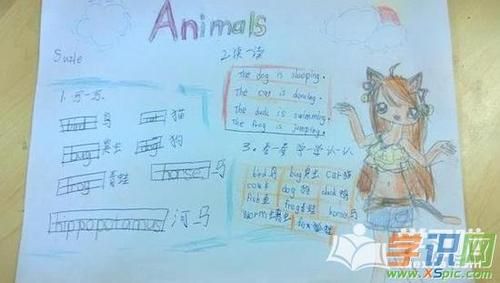 Animals
Suzie
1. 写一写
bird 鸟 cat 猫
bug 昆虫 dog 狗
frog 青蛙 horse 马
hippopotamus 河马
2. 读一读
The dog is sleeping.
The cat is dancing.
The duck is swimming.
The frog is jumping.
3. 看一看 学一学 认一认
bird 鸟 bug 昆虫 cat 猫
dog 狗 duck 鸭
fish 鱼 frog 青蛙 horse 马
worm 虫 fox 狐狸
学识网
www.XSpic.com